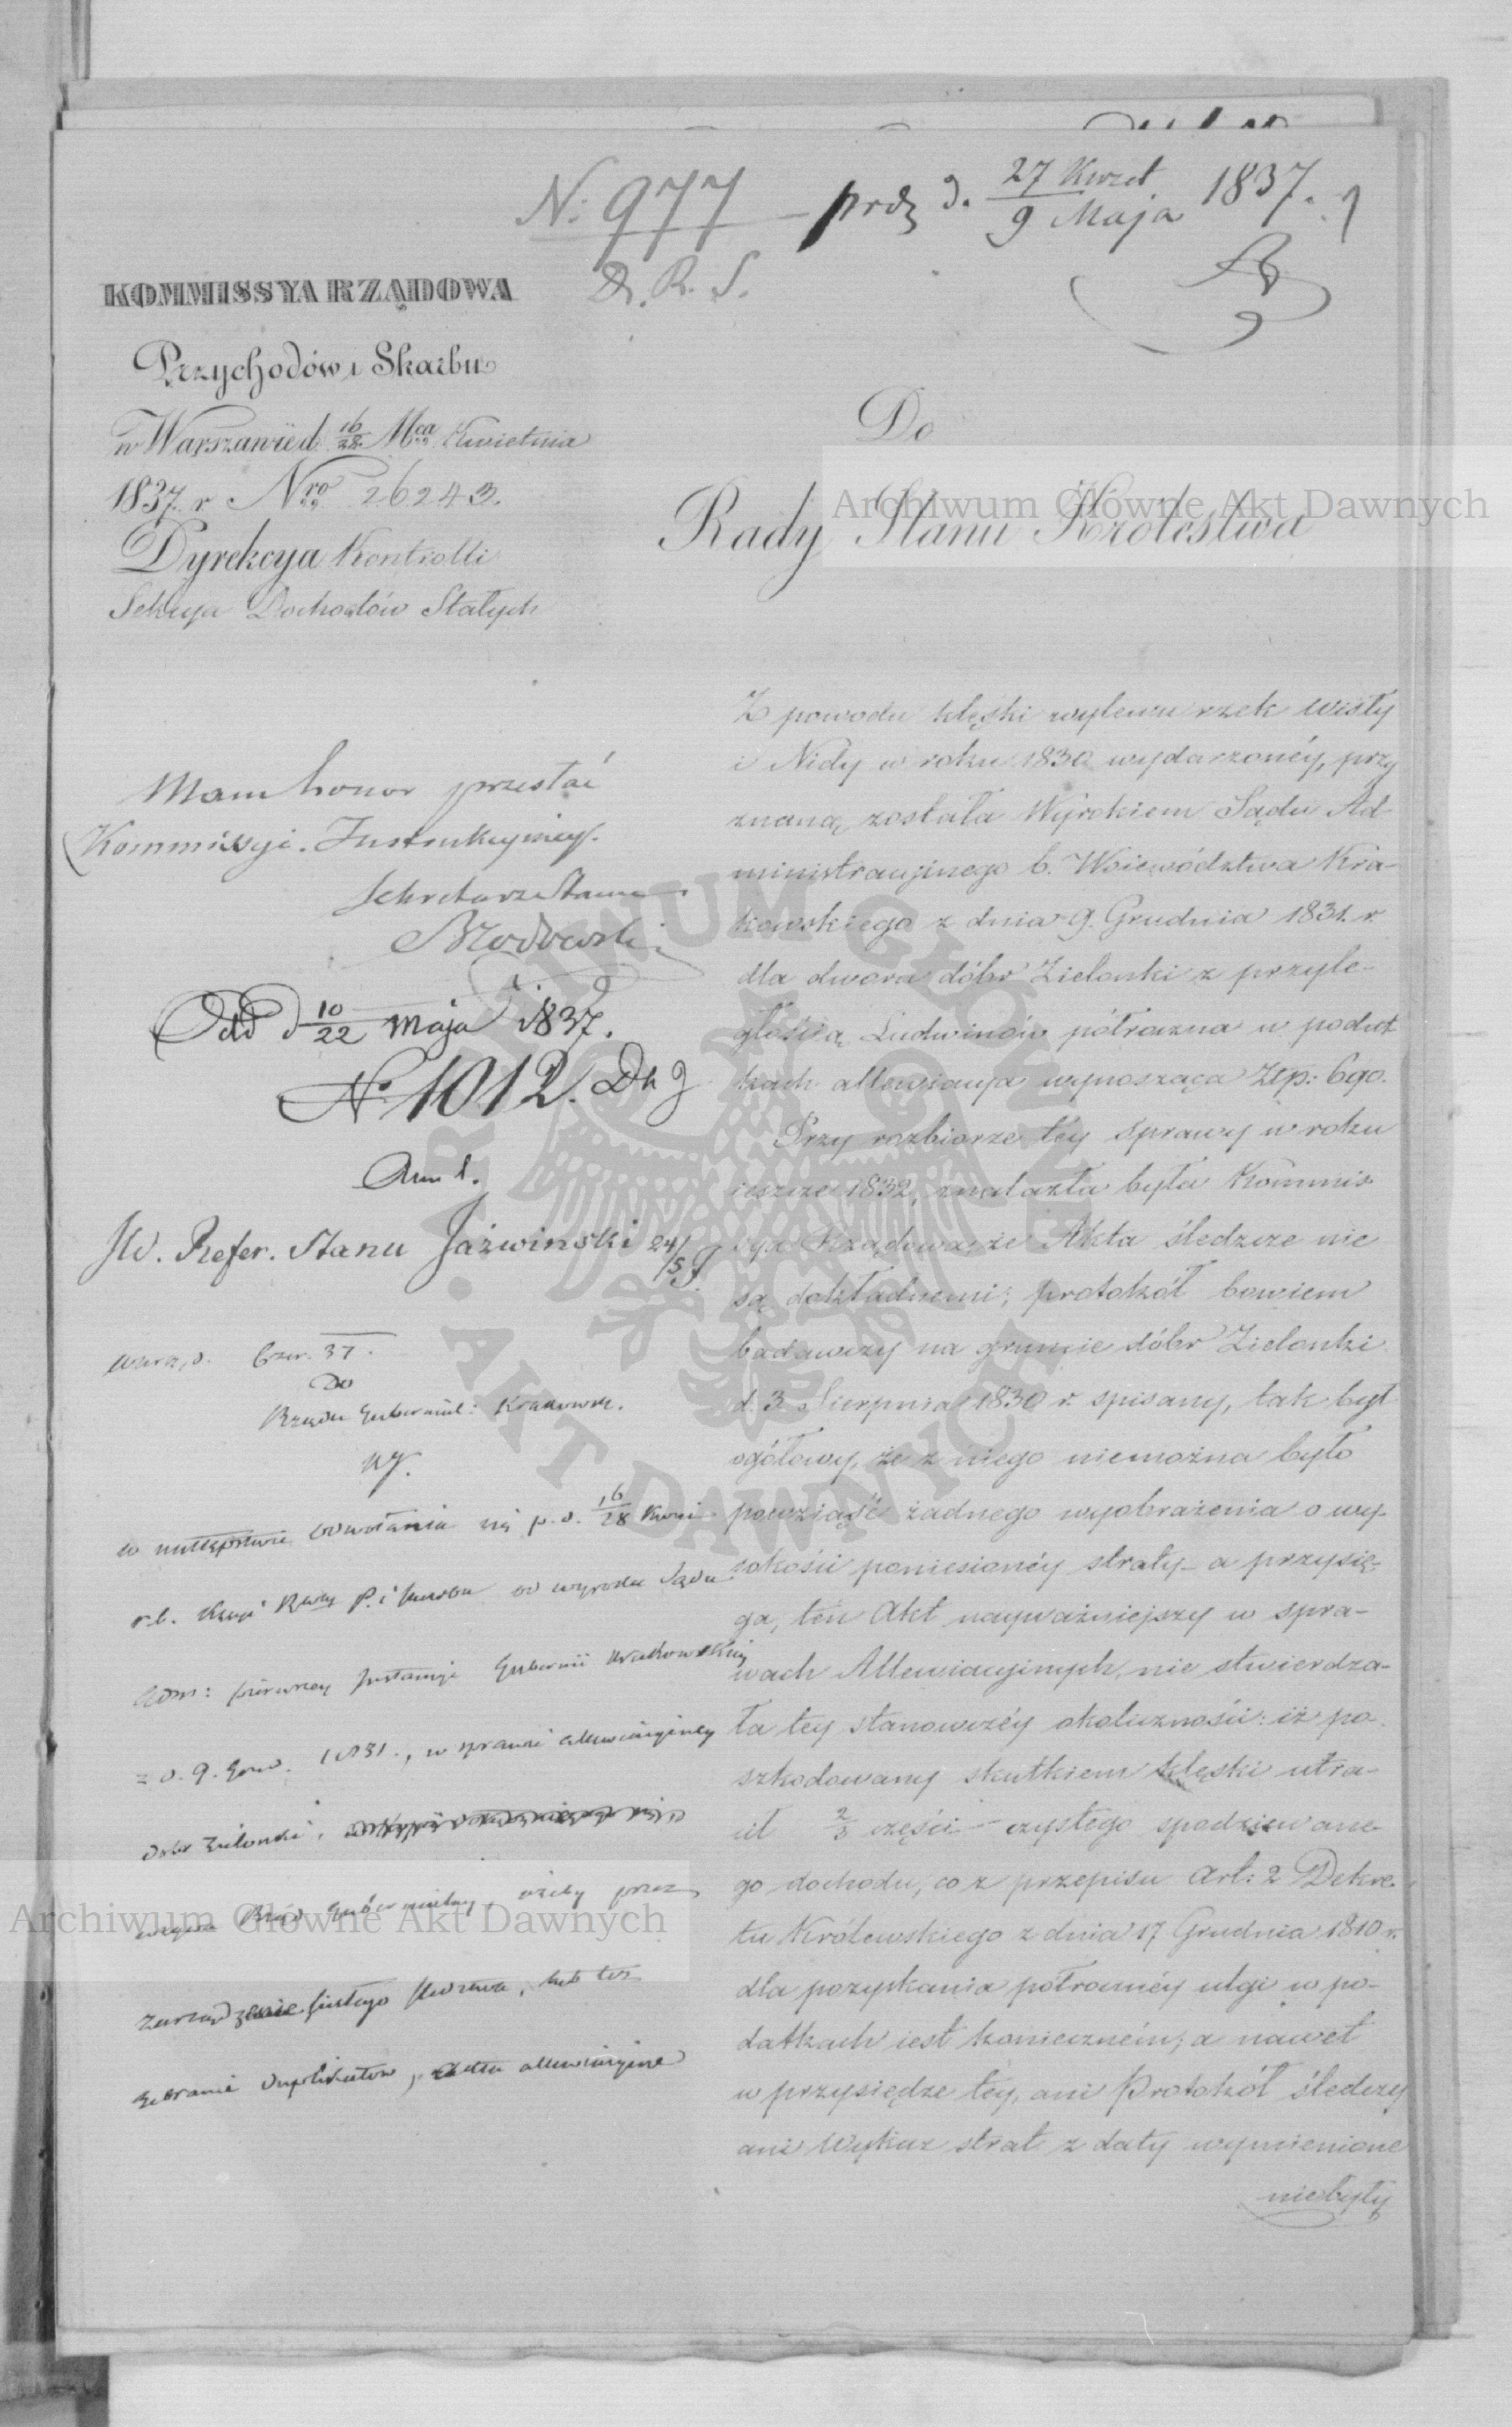 N: 977 prdz d. 27 Kwiet / 9 Maja 1837.
D. R. S.
KOMMISSYA RZĄDOWA
Przychodów i Skarbu
w Warszawie d. 16/28. Mca Kwietnia
1837. r Nro 26243.
Dyrekcya Kontrolli
Sekcya Dochodów Stałych
Do
Rady Stanu Królestwa
Archiwum Główne Akt Dawnych
Mam honor przesłać
Kommissyi Instrukcyiney.
Sekretarz Stanu
Odd d 10/22 Maja 1837.
N. 1012.
JW. Refer. Stanu Jaźwinski 24/5
Czer. 37.
Do
Rządu Gubernial: Krakowsk.
w następstwie odwołania się p. d. 16/28 Kwie
r. b. Kssyi Rządy P. i Skarbu od wyroku Sądu
Adm: pierwszey Instancyi Gubernii Krakowskiey
z d. 9. Grud. 1831., w sprawie allewiacyiney
dóbr Zielonki,
wzywa Rząd Gubernialny, ażeby przez
zebranie duplikatów, akta allewiacyine
Z powodu klęski wylewu rzek Wisły
i Nidy w roku 1830 wydarzonéy, przy
znaną została Wyrokiem Sądu Ad
ministracyjnego b. Woiewództwa Kra-
kowskiego z dnia 9. Grudnia 1831. r
dla dworu dóbr Zielonki z przyle-
głością Ludwinów półroczna w podat
kach allewiacya wynosząca Złp: 690.
Przy rozbiorze téy sprawy w roku
ieszcze 1832, znalazła była Kommis
sya Rządowa, że Akta śledcze nie
są dokładnemi; protokół bowiem
badawczy na gruncie dóbr Zielonki
d. 3 Sierpnia 1830 r. spisany, tak był
ogółowy, że z niego niemożna było
powziąść żadnego wyobrażenia o wy-
sokości poniesionéy straty – a przysię-
ga, ten Akt nayważniejszy w spra-
wach Allewiacyjnych, nie stwierdza-
ła téy stanowczéy okoliczności: iż po
szkodowany skutkiem klęski utra-
cił 2/3 części czystego spodziewane-
go dochodu, co z przepisu Art: 2 Dekre
tu Królewskiego z dnia 17 Grudnia 1810 r.
dla pozyskania półrocznéy ulgi w po-
datkach iest koniecznem; a nawet
w przysiędze téy, ani Protokół śledczy
ani Wykaz strat z daty wymienione
niebyły
Archiwum Główne Akt Dawnych
ARCHIWUM GŁÓWNE AKT DAWNYCH